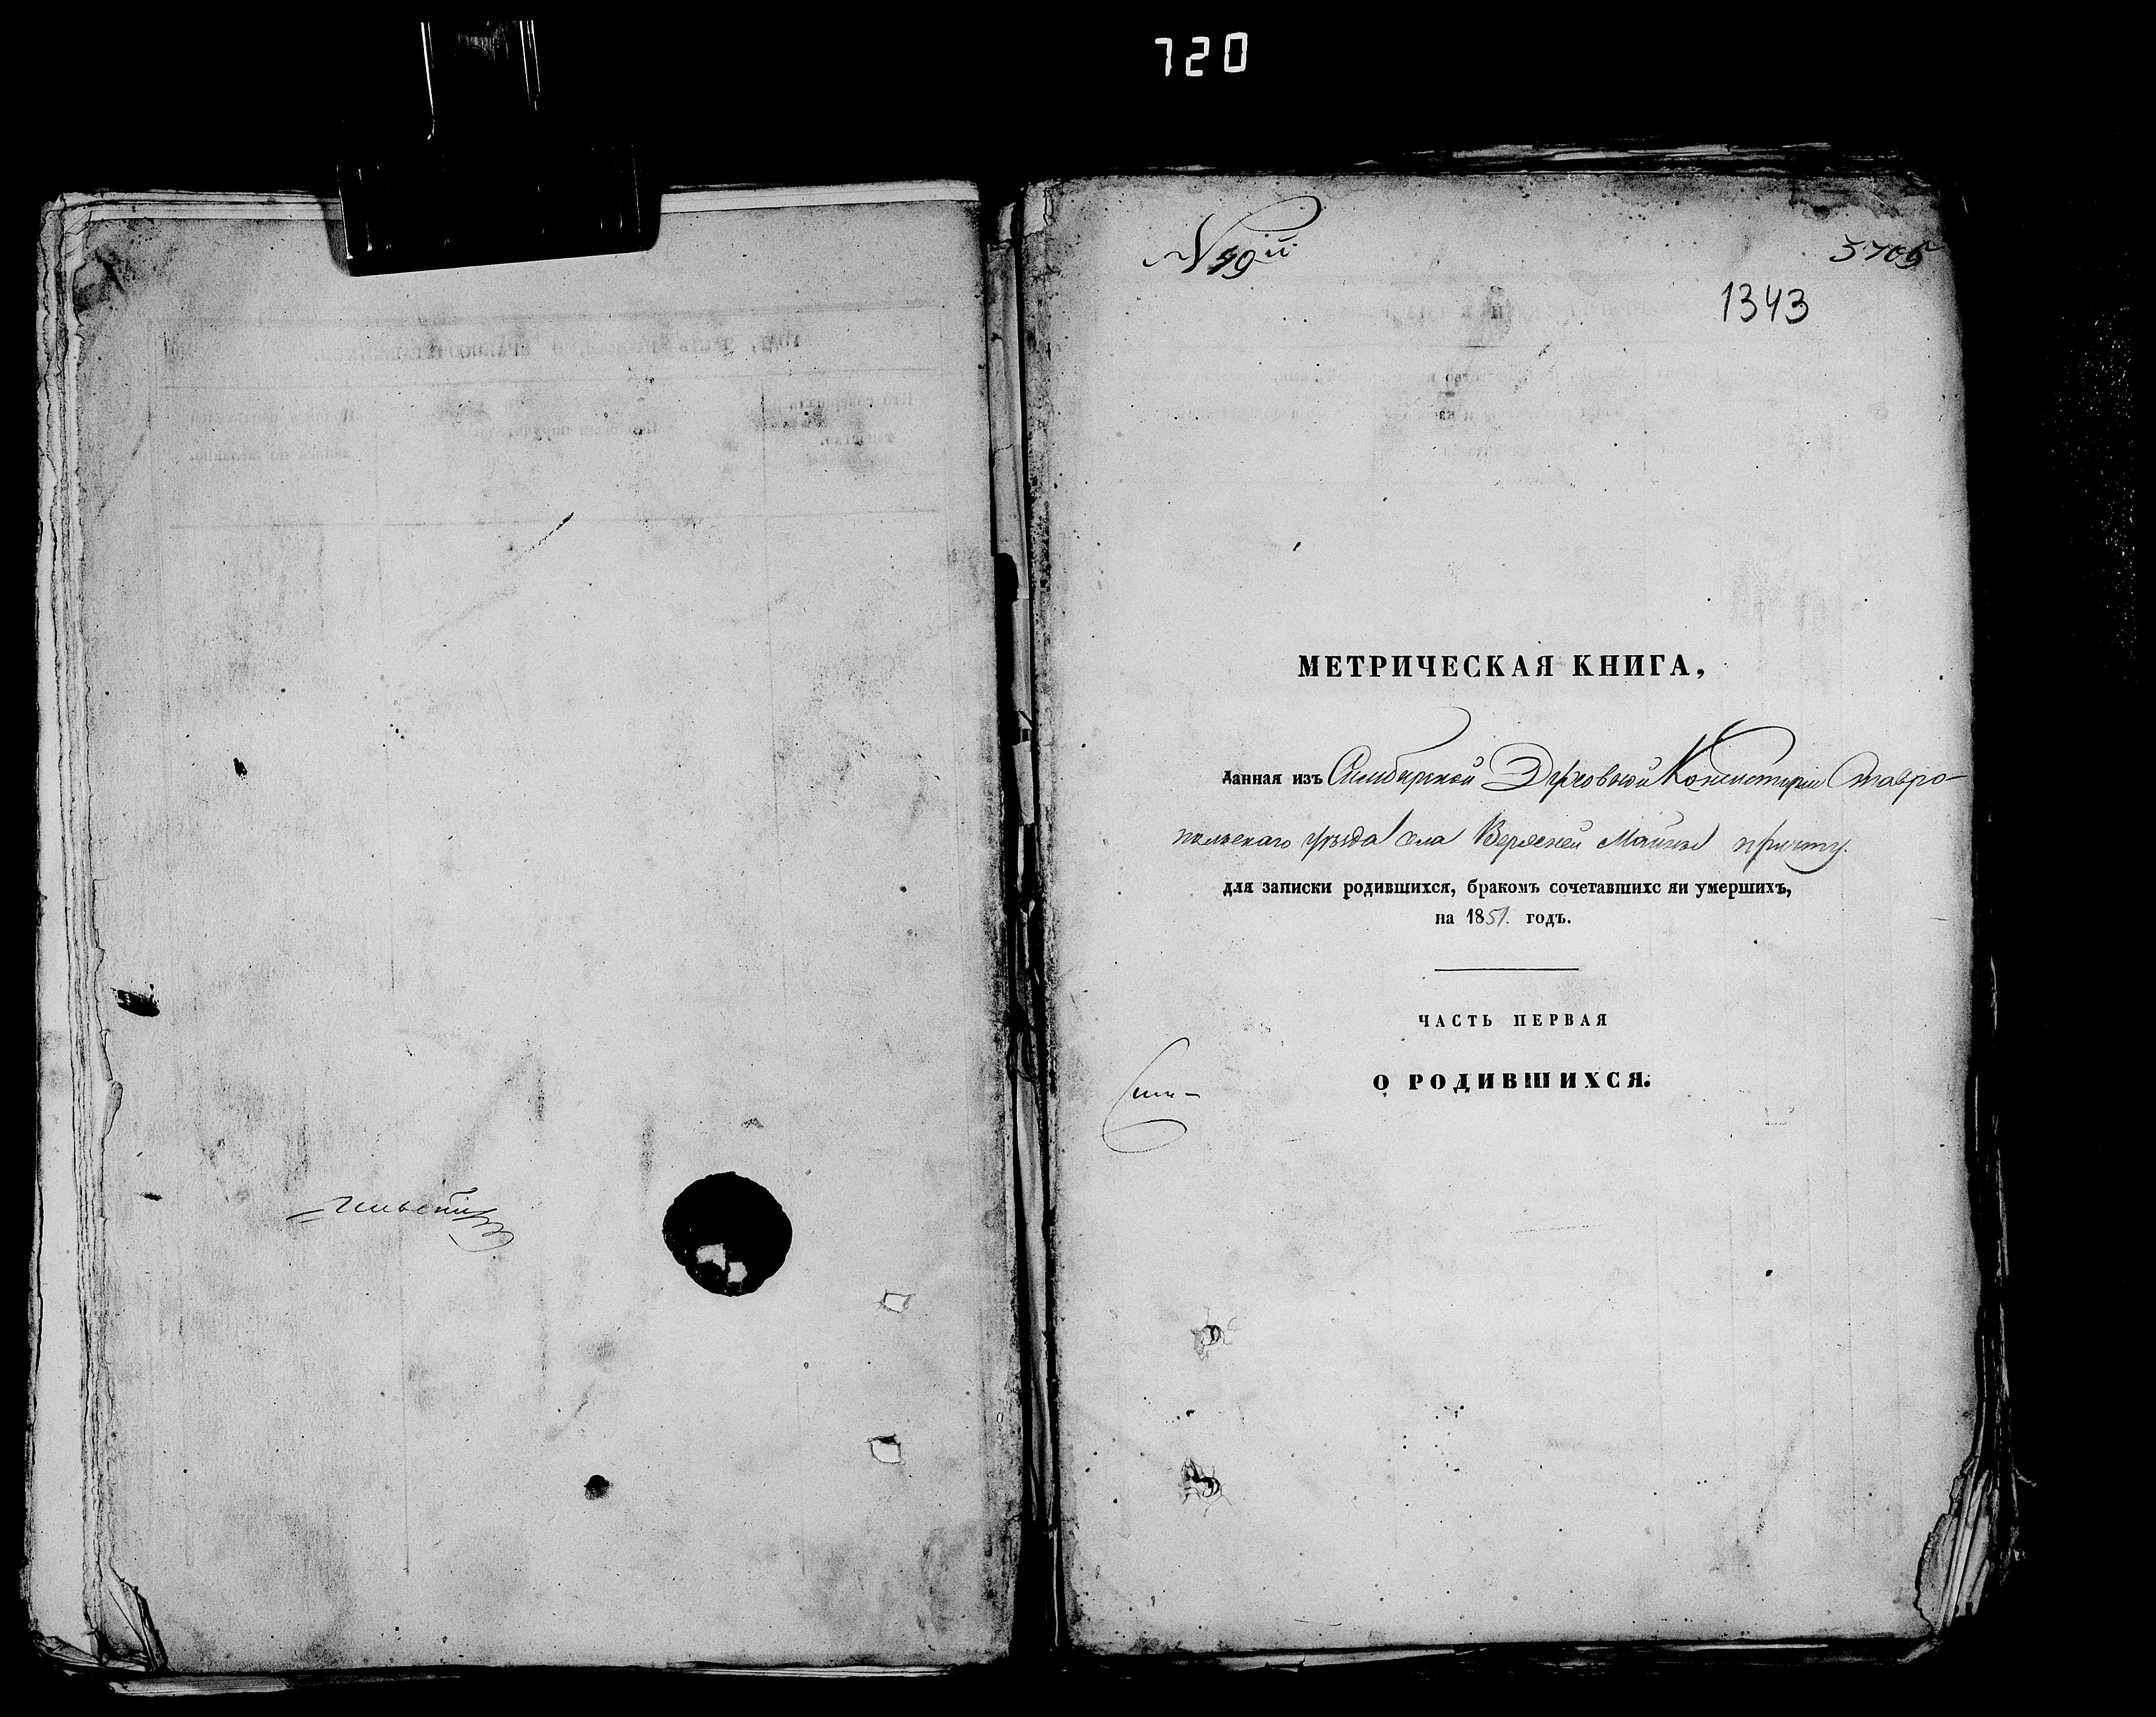 720
1343
МЕТРИЧЕСКАЯ КНИГА,
данная изъ Симбирской Духовной Консисторіи Ставро-
польскаго уѣзда села Верхней Майны причту
для записки родившихся, бракомъ сочетавшихс яи умершихъ,
на 1851. годъ.
ЧАСТЬ ПЕРВАЯ
О РОДИВШИХСЯ.